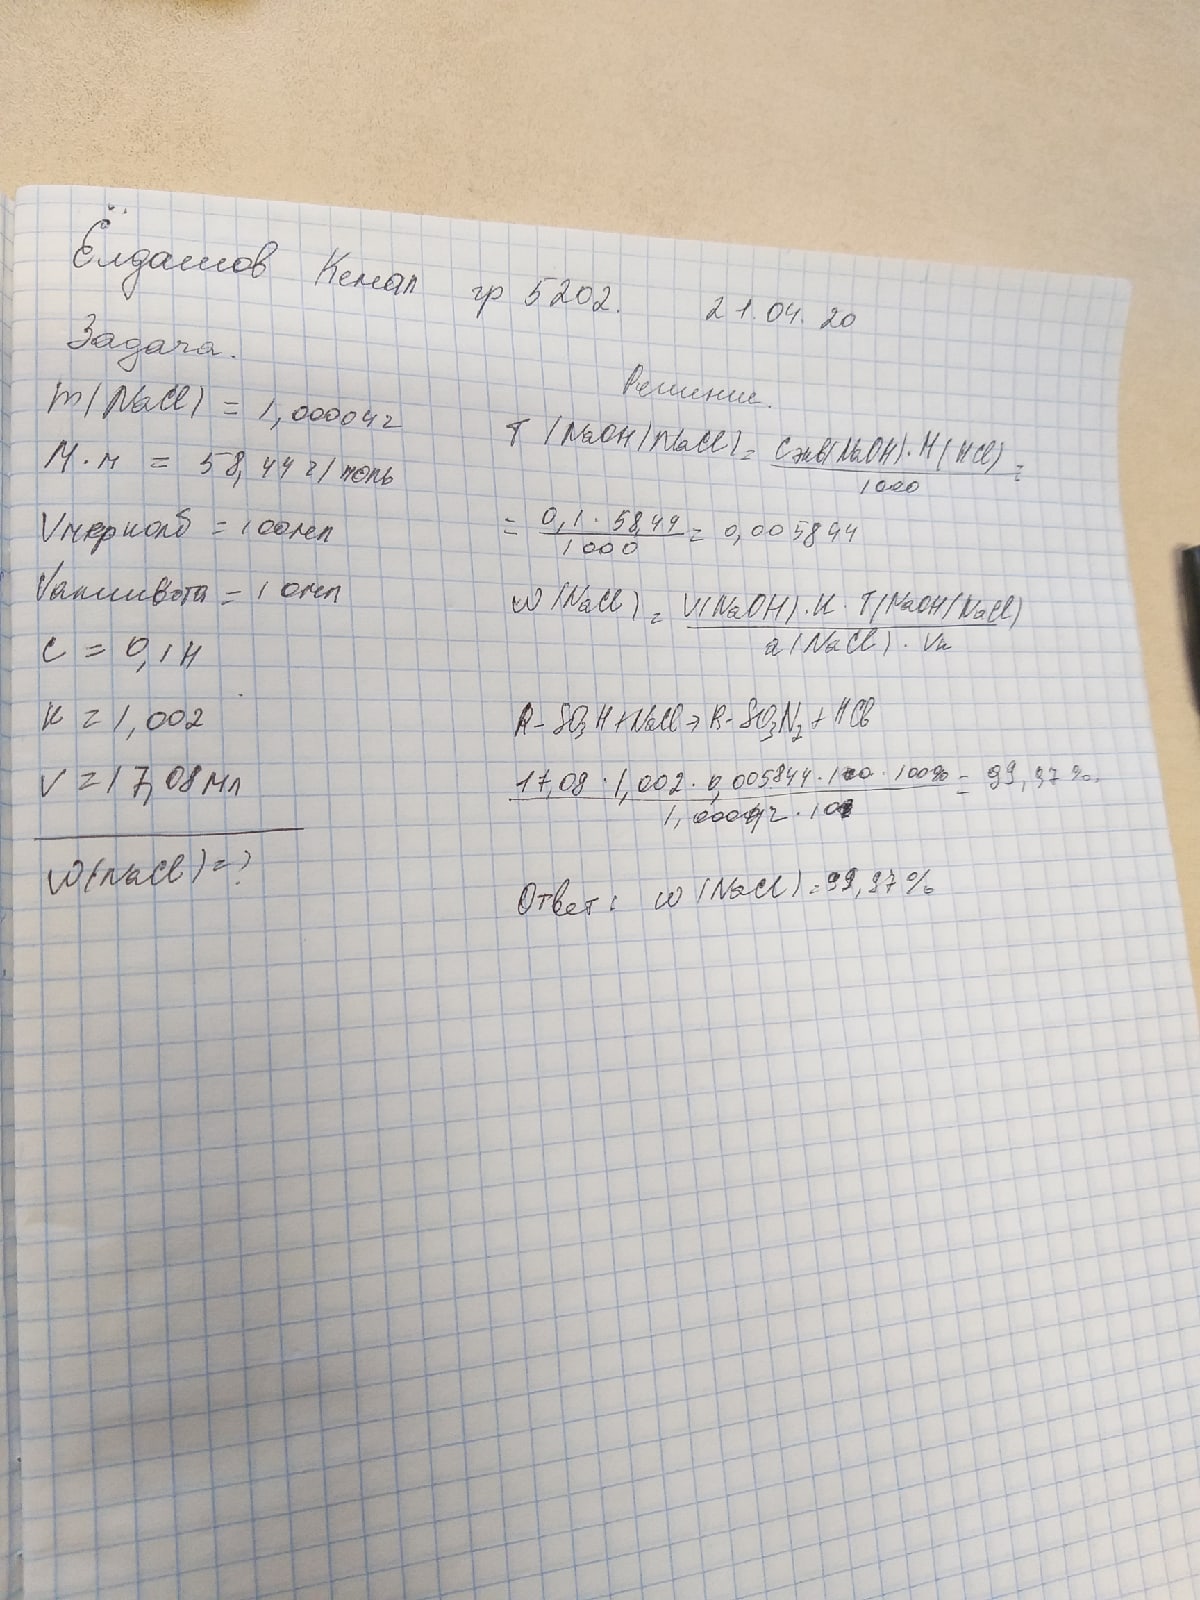 Ёлдашов Кемал гр 5202. 21.04.20
Задача.
m(NaCl) = 1,00004г
М.м = 58,44г/моль
Vмерколб = 100мл
Vаликвота = 10мл
C = 0,1н
К = 1,002
V = 17,08мл
W(NaCl)=?
Решение.
T(NaOH/NaCl) = Cэкв(NaOH)·M(HCl) =
1000
= 0,1·58,44 = 0,005844
1000
W(NaCl) = V(NaOH)·K·T(NaOH/NaCl)
a(NaCl)·Vк
R-SO3H+NaCl→R-SO3N2+HCl
17,08·1,002·0,005844·100·100% = 99,97%.
10
Ответ: W(NaCl)=99,97%